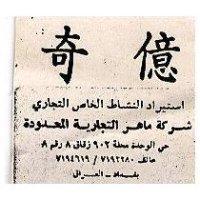 奇億
استيراد النشاط الخاص التجاري
شركة ماهر التجارية المحدودة
حي الوحدة محلة ٩٠٢ زقاق ٨ رقم ٨
هاتف ٧١٩٢٢٨٠ / ٧١٩٤٦١٩
بغداد - العراق